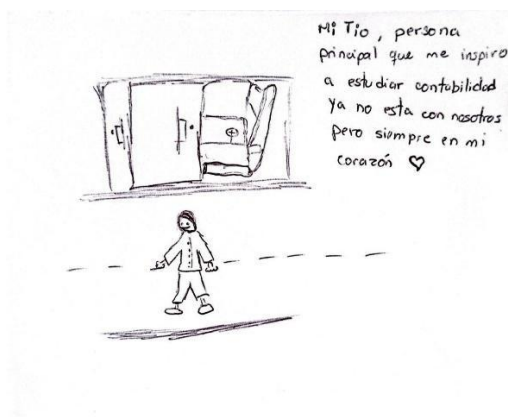 Mi Tio, persona
principal que me inspiro
a estudiar contabilidad
Ya no esta con nosotros
pero siempre en mi
corazón ♡